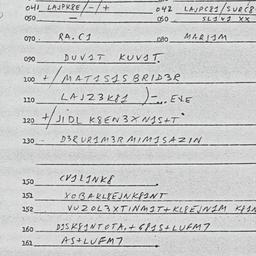 041 LAJPK8E/-/+ 042 LAJPC81/SUR[8
050 060 SL1V1 XX
070 RA.C1 080 MAR1M
090 DUV1T KUV1T.
100 +/MAT1S1S BR1D3R
110 LAJZ3K81 )-... EVE
120 +/JIDL K8EN3XN1S+T
130 D3RUR1M3RM1M1SAZ1N
150 CV1L1NK8
151 XOBAKL8EJNK81NT
152 VUZOL3XT1NM1T+KL8EJN1M K81N
160 D1SK81NTOTA,+681S+LUFM7
161 AS+LUFM7